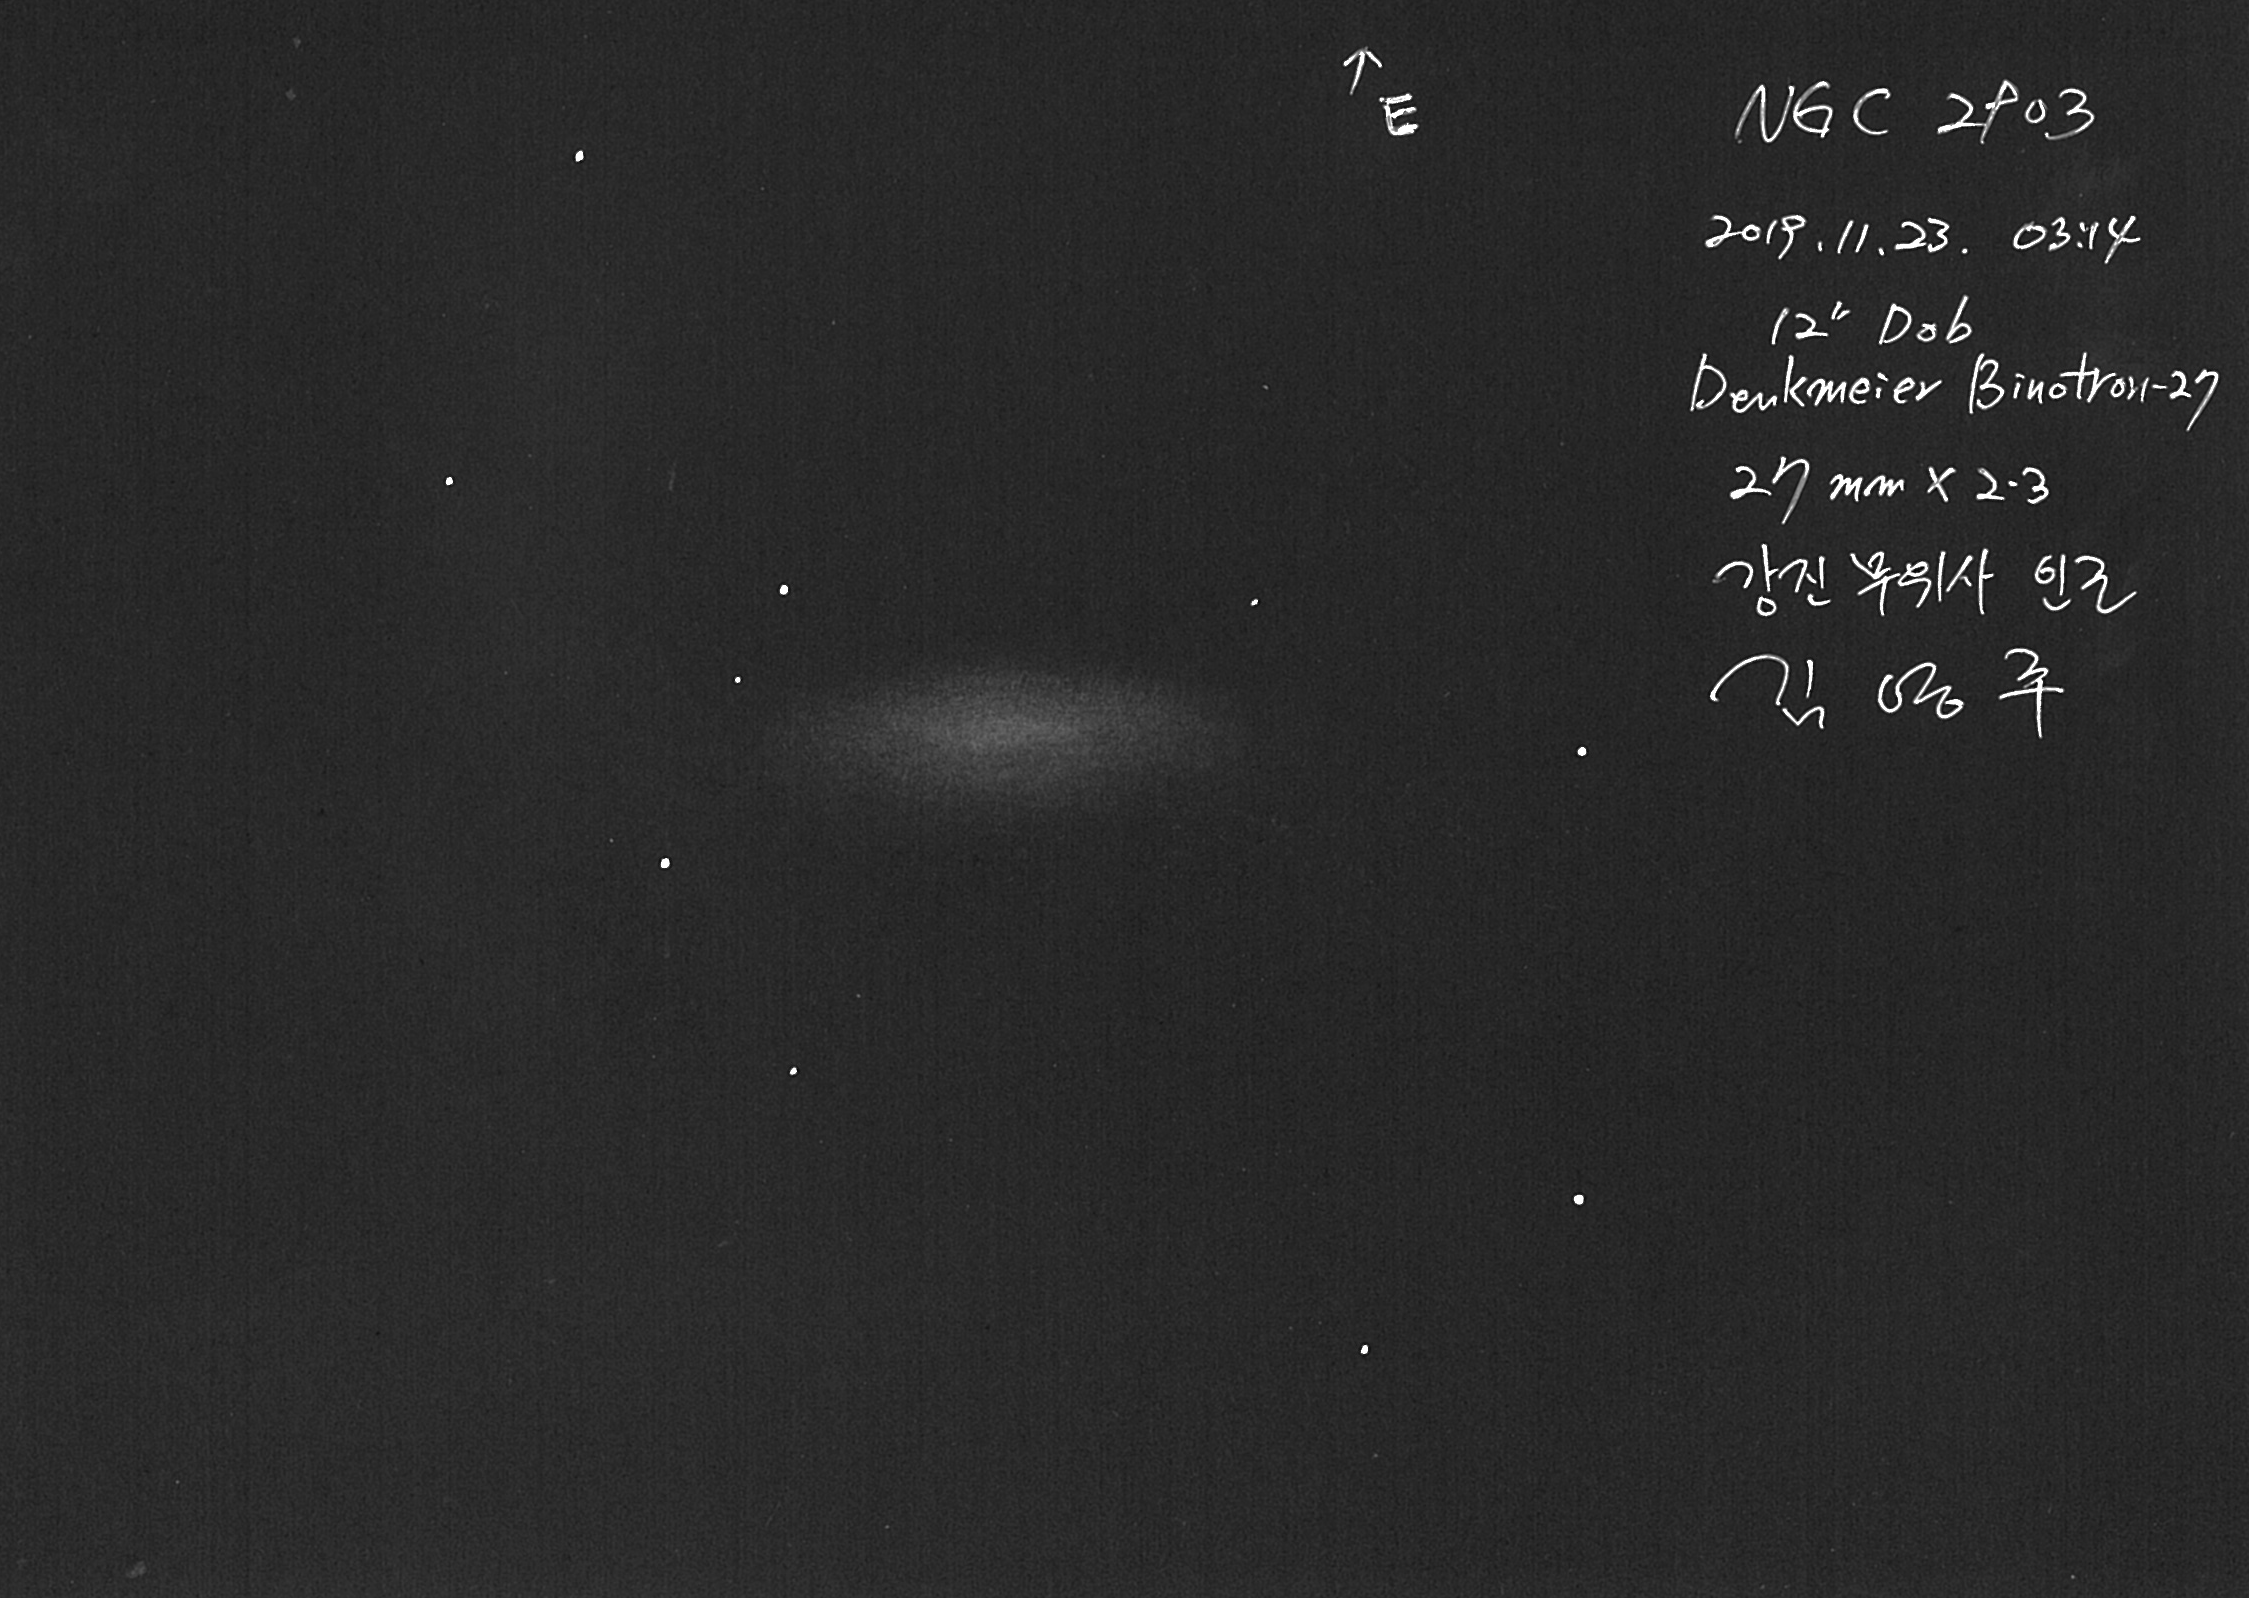 ↑
E
NGC 2903
2019.11.23. 03:14
12" Dob
Denkmeier Binotron-27
27mm x 2.3
강진 무위사 인근
김영주